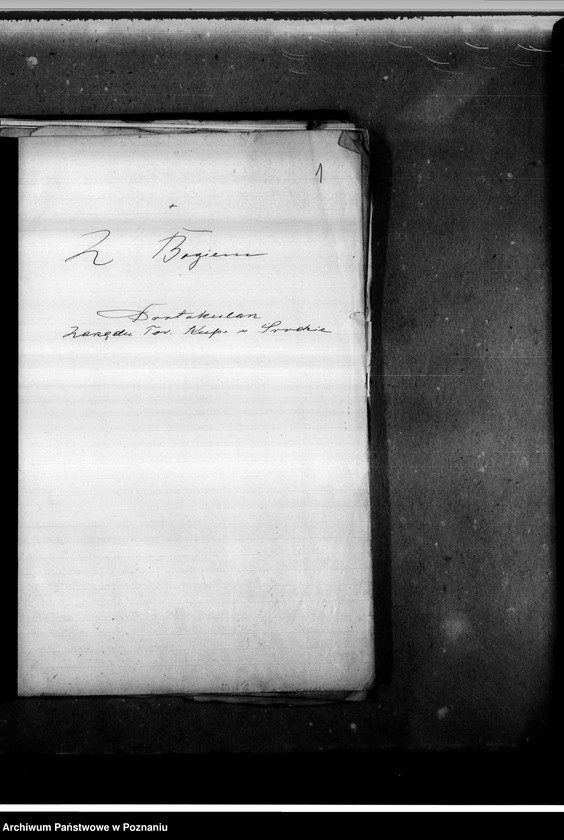 1
+
Z Bogiem
Protokularz
Zarządu Tow. Kup. w Środzie
Archiwum Państwowe w Poznaniu